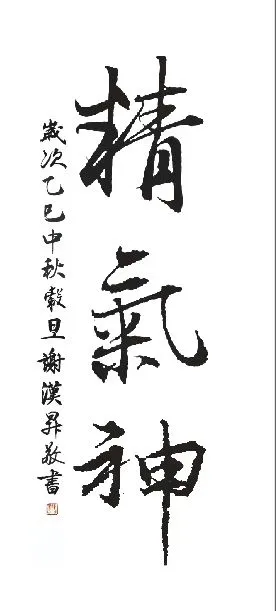 精氣神
歲次乙巳中秋穀旦謝漢昇敬書